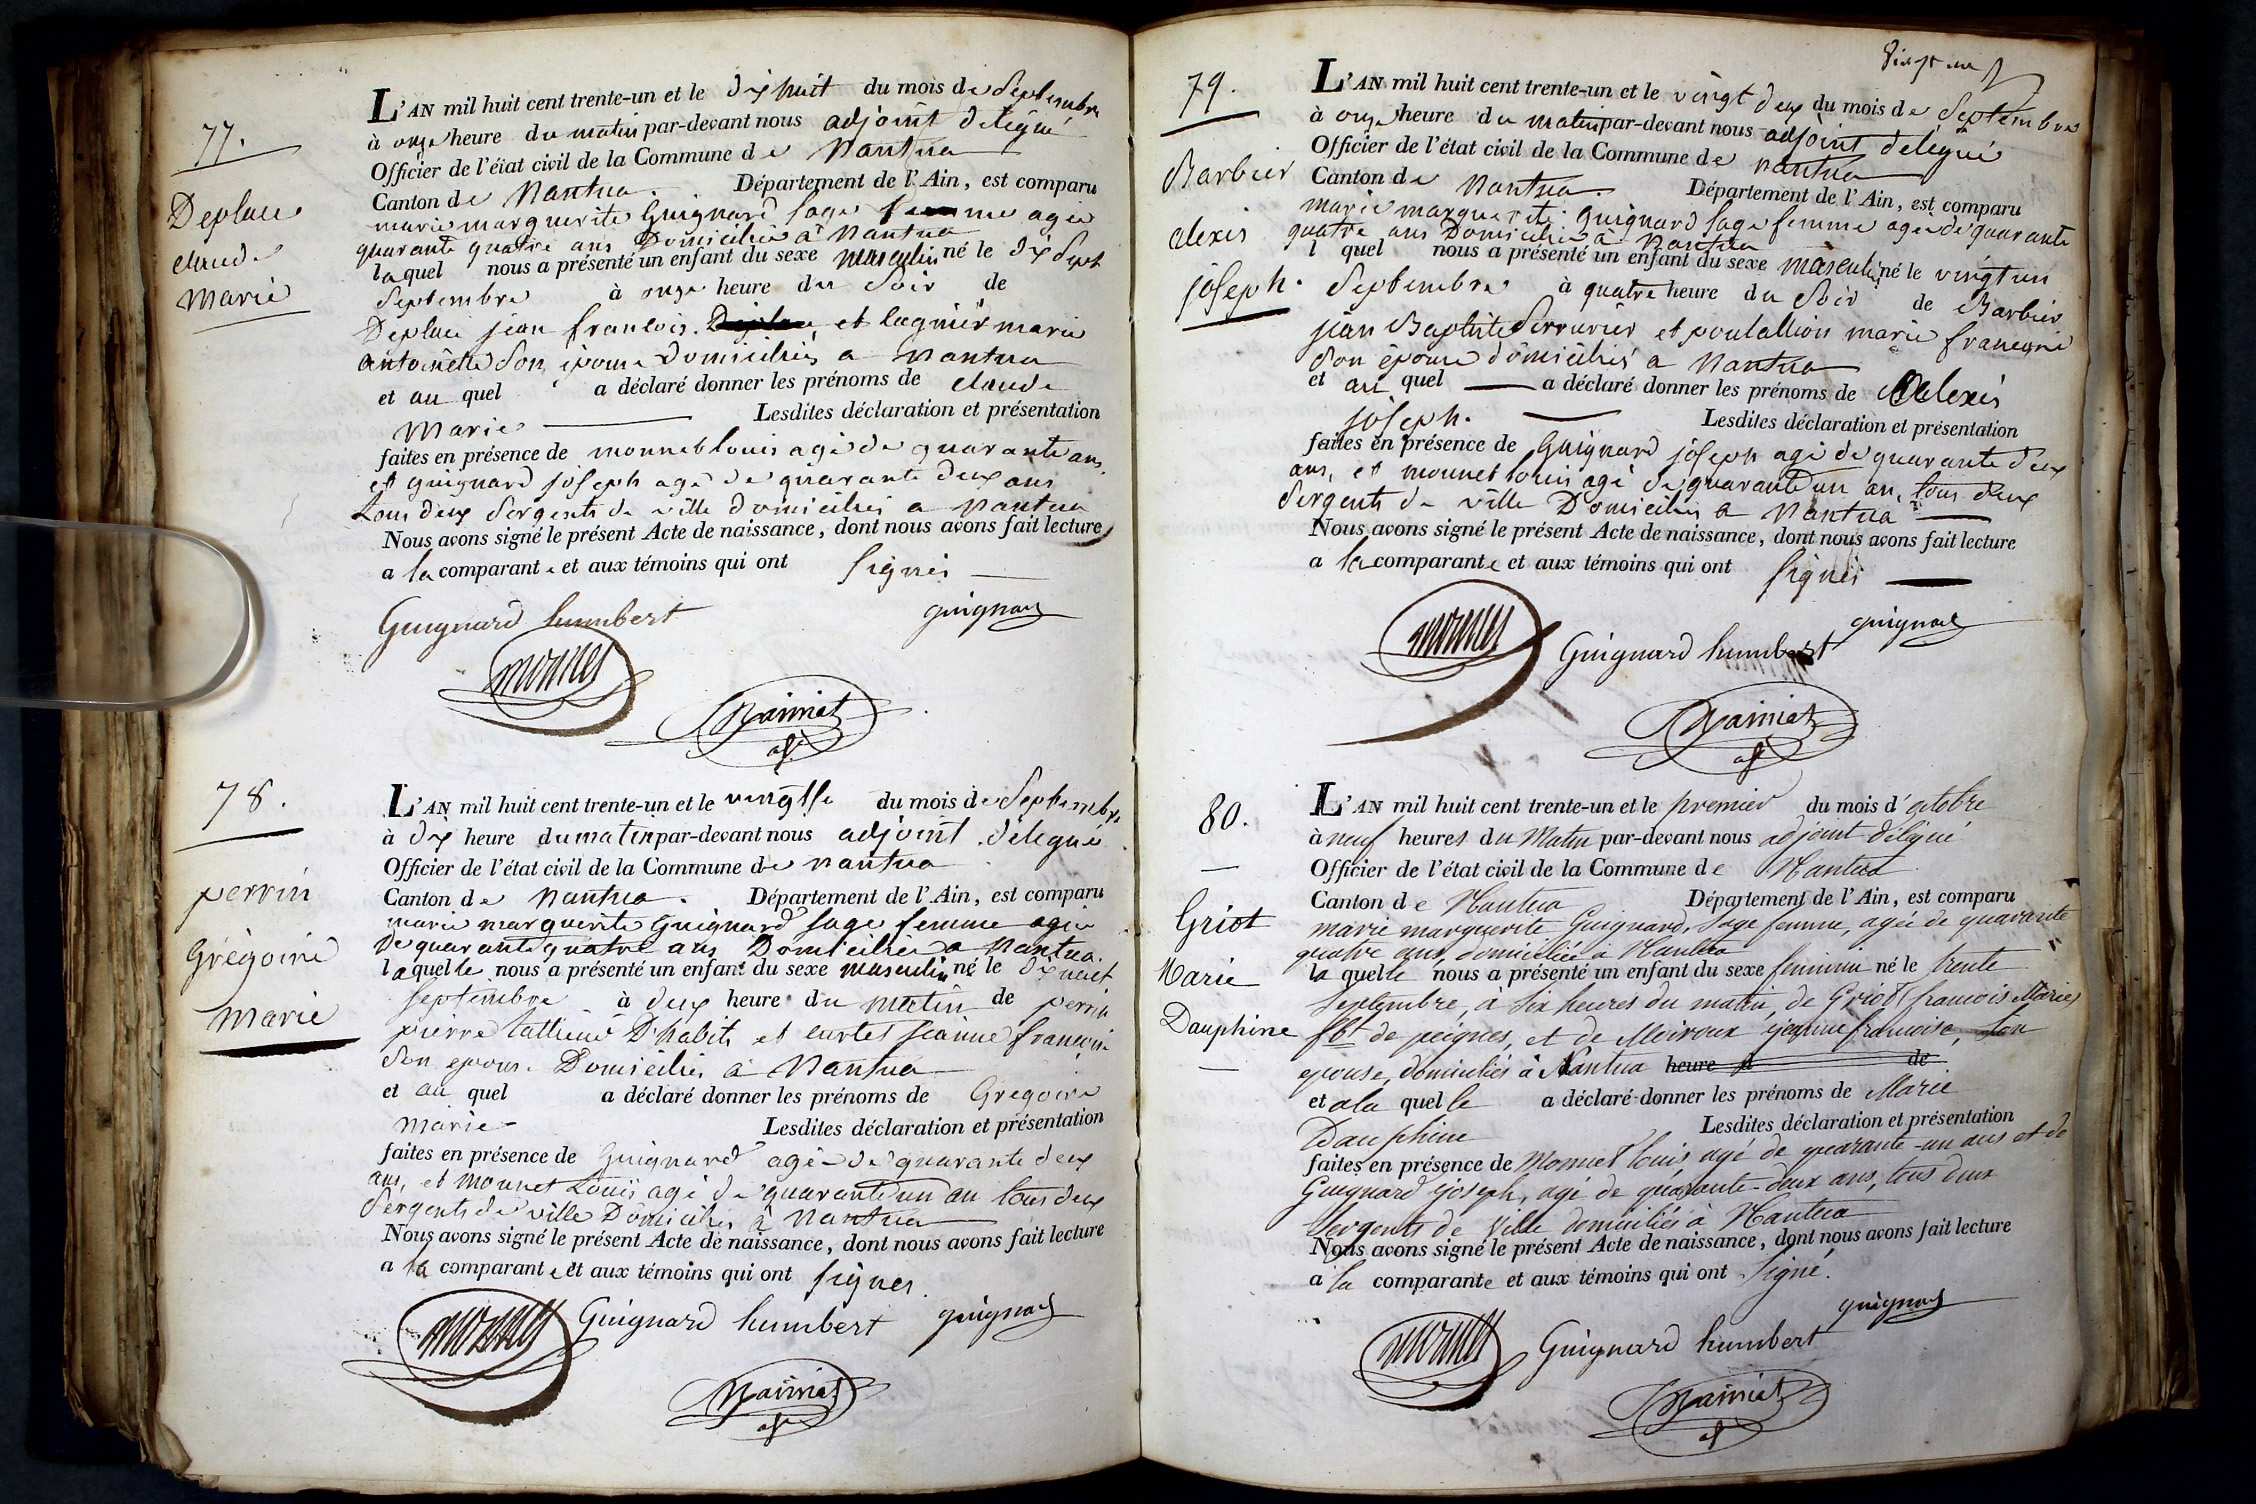 77.
Deplace
claude
marie
L'AN mil huit cent trente-un et le dix huit du mois de Septembre
à onze heure du matin par-devant nous adjoint delegué
Officier de l'état civil de la Commune de Nantua
Canton de Nantua. Département de l'Ain, est comparu
marie marguerite Guignard sage femme agée
quarante quatre ans Domiciliée à Nantua
laquel nous a présenté un enfant du sexe masculin né le dix Sept
Septembre à onze heure du Soir de
Deplace jean francois et lagnier marie
antoinette Son épouse domiciliés a Nantua
et au quel a déclaré donner les prénoms de claude
Marie Lesdites déclaration et présentation
faites en présence de monnet louis agé de quarante ans
et guignard joseph agé de quarante deux ans
tous deux Sergents de ville domiciliés a Nantua
Nous avons signé le présent Acte de naissance, dont nous avons fait lecture
a la comparante et aux témoins qui ont signés
Guignard humbert guignard
monnet
78.
perrin
Grégoire
Marie
L'AN mil huit cent trente-un et le vingt du mois de Septembre
à dix heure du matin par-devant nous adjoint délegué
Officier de l'état civil de la Commune de nantua
Canton de Nantua. Département de l'Ain, est comparu
marie marguerite Guignard sage femme agée
de quarante quatre ans Domiciliée a Nantua.
laquelle nous a présenté un enfant du sexe masculin né le dix huit
septembre à deux heure du matin de perrin
pierre tallieur D'habits et cartet jeanne françoise
Son epouse Domiciliés à Nantua
et au quel a déclaré donner les prénoms de Gregoire
marie Lesdites déclaration et présentation
faites en présence de Guignard agé de quarante deux
ans, et Monnet Louis agé de quarante un an tous deux
Sergents de ville Domiciliés à Nantua
Nous avons signé le présent Acte de naissance, dont nous avons fait lecture
a la comparante et aux témoins qui ont signés.
monnet Guignard humbert guignard
Vingt un
79.
Barbier
alexis
joseph.
L'AN mil huit cent trente-un et le vingt deux du mois de Septembre
à onze heure du matin par-devant nous adjoint delegué
Officier de l'état civil de la Commune de nantua
Canton de Nantua. Département de l'Ain, est comparu
marie marguerite Guignard sage femme agée de quarante
quatre ans Domiciliée à Nantua
l quel nous a présenté un enfant du sexe masculin né le vingt un
Septembre à quatre heure du Soir de Barbier
jean Baptiste Serrurier et marie françoise
Son épouse domiciliés a Nantua
et au quel a déclaré donner les prénoms de Alexis
joseph. Lesdites déclaration et présentation
faites en présence de Guignard joseph agé de quarante deux
ans, et monnet louis agé de quarante un an, tous deux
Sergents de ville Domiciliés a Nantua
Nous avons signé le présent Acte de naissance, dont nous avons fait lecture
a la comparante et aux témoins qui ont signés
monnet Guignard humbert guignard
80.
Griot
Marie
Dauphine
L'AN mil huit cent trente-un et le premier du mois d'octobre
à neuf heures du Matin par-devant nous adjoint délégué
Officier de l'état civil de la Commune de Nantua
Canton de Nantua Département de l'Ain, est comparu
marie marguerite Guignard, Sage femme, agée de quarante
quatre ans, domiciliée à Nantua
la quelle nous a présenté un enfant du sexe feminin né le trente
septembre, à six heures du matin, de Griot françois Marie,
fbt de peignes, et de Moiroux jeanne françoise, son
epouse, domiciliés à Nantua heure d de
et a la quelle a déclaré donner les prénoms de Marie
Dauphine Lesdites déclaration et présentation
faites en présence de Monnet louis, agé de quarante-un ans et de
Guignard joseph, agé de quarante-deux ans, tous deux
Sergents de ville domiciliés à Nantua
Nous avons signé le présent Acte de naissance, dont nous avons fait lecture
a la comparante et aux témoins qui ont signé.
monnet Guignard humbert guignard